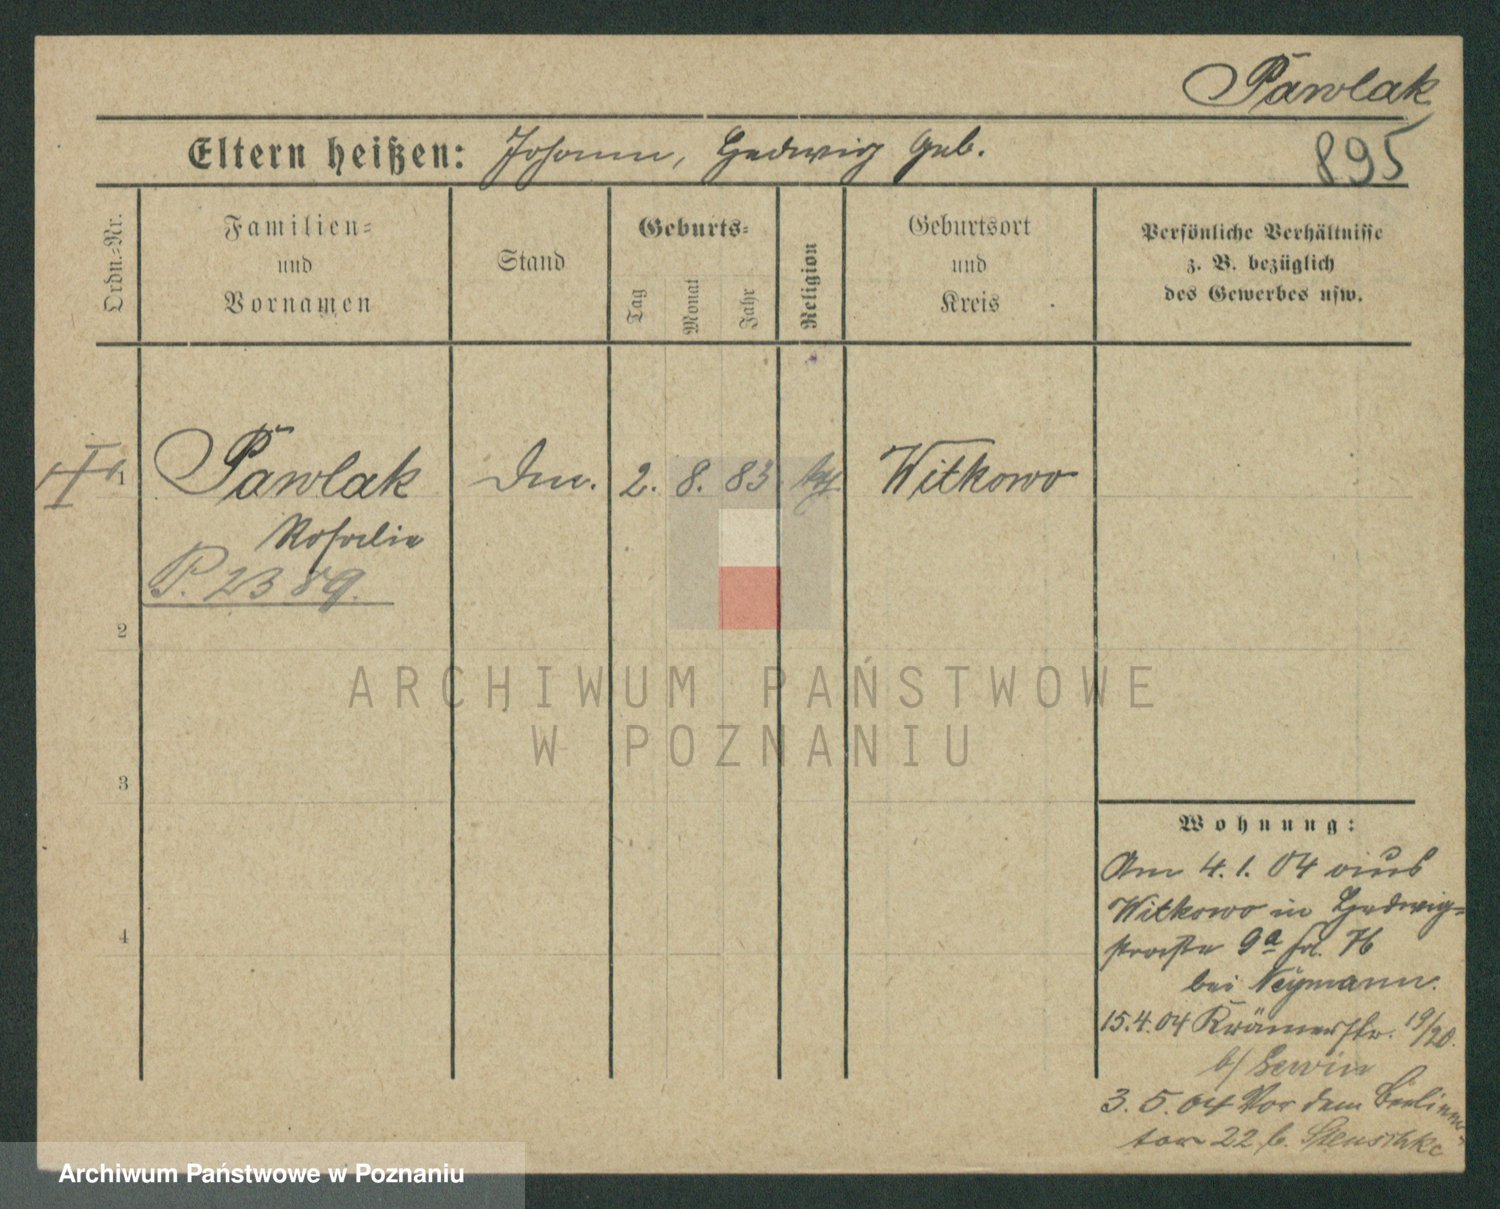 Pawlak
Eltern heißen: Johann, Hedwig geb.
895
Ordn.-Nr.
Familien-
und
Vornamen
Stand
Geburts-
Tag
Monat
Jahr
Religion
Geburtsort
und
Kreis
Persönliche Verhältnisse
z. B. bezüglich
des Gewerbes usw.
1
Pawlak
Rosalie
P. 2389.
2. 8. 83
Witkowo
2
3
4
ARCHIWUM PAŃSTWOWE
W POZNANIU
Wohnung:
Am 4. 1. 04 aus
Witkowo in Hedwig-
straße 9a 76
bei Neymann.
15.4.04 Krämerstr. 19/20.
b/ Lewin
3. 5. 04 Vor dem Berliner
tor 22 b.
Archiwum Państwowe w Poznaniu